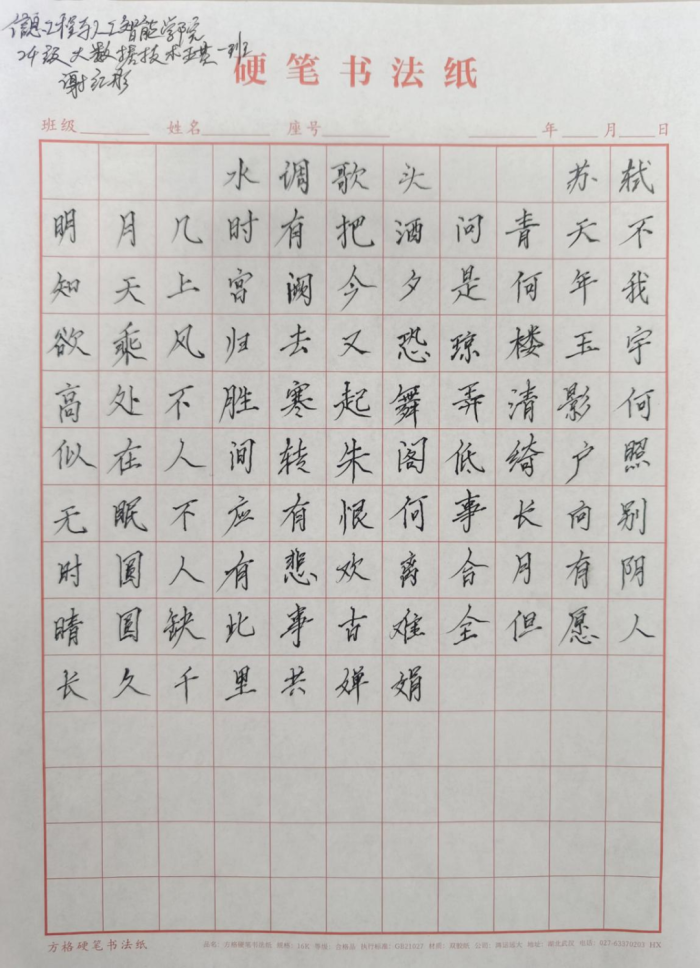 信息工程与人工智能学院
24级大数据技术
一班
谢红彤
硬笔书法纸
班级 姓名 座号 年 月 日
水调歌头 苏轼
明月几时有把酒问青天不
知天上宫阙今夕是何年我
欲乘风归去又恐琼楼玉宇
高处不胜寒起舞弄清影何
似在人间转朱阁低绮户照
无眠不应有恨何事长向别
时圆人有悲欢离合月有阴
晴圆缺此事古难全但愿人
长久千里共婵娟
方格硬笔书法纸